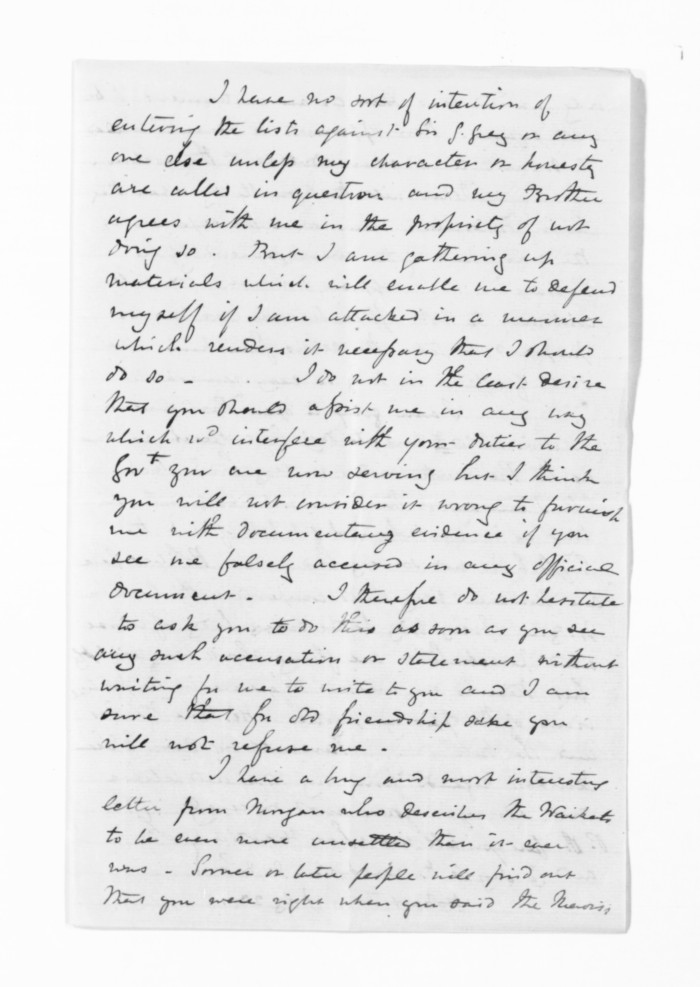 I have no sort of intention of
entering the lists against Sir G. Grey or any
one else unless my character or honesty
are called in question and my Brother
agrees with me in the propriety of not
doing so. But I am gathering up
materials which will enable me to defend
myself if I am attacked in a manner
which renders it necessary that I should
do so - . I do not in the least desire
that you should assist me in any way
which wd interfere with your duties to the
Govt you are now serving but I think
you will not consider it wrong to furnish
me with documentary evidence if you
see me falsely accused in any official
document - . I therefore do not hesitate
to ask you to do this as soon as you see
any such accusation or statement without
waiting for me to write to you and I am
sure that for old friendship sake you
will not refuse me -
I have a long and most interesting
letter from Morgan who describes the Waikato
to be even more unsettled than it ever
was - Sooner or later people will find out
that you were right when you said the Maoris